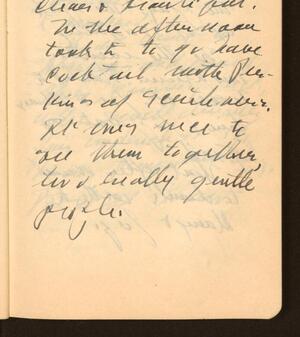 Clear & beautiful.
In the afternoon
took t to go have
cocktail with
kins of
It was nice to
see them together,
two really gentle
people.